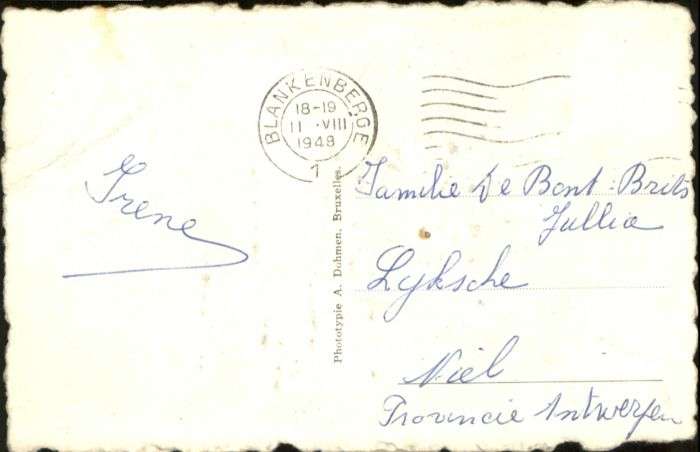 BLANKENBERGE
18-19
11 ·VIII
1948
1
Irene
Familie De Bont-Brits
Jullia
Lyksche
Niel
Provincie Antwerpen
Phototypie A. Dohmen, Bruxelles.